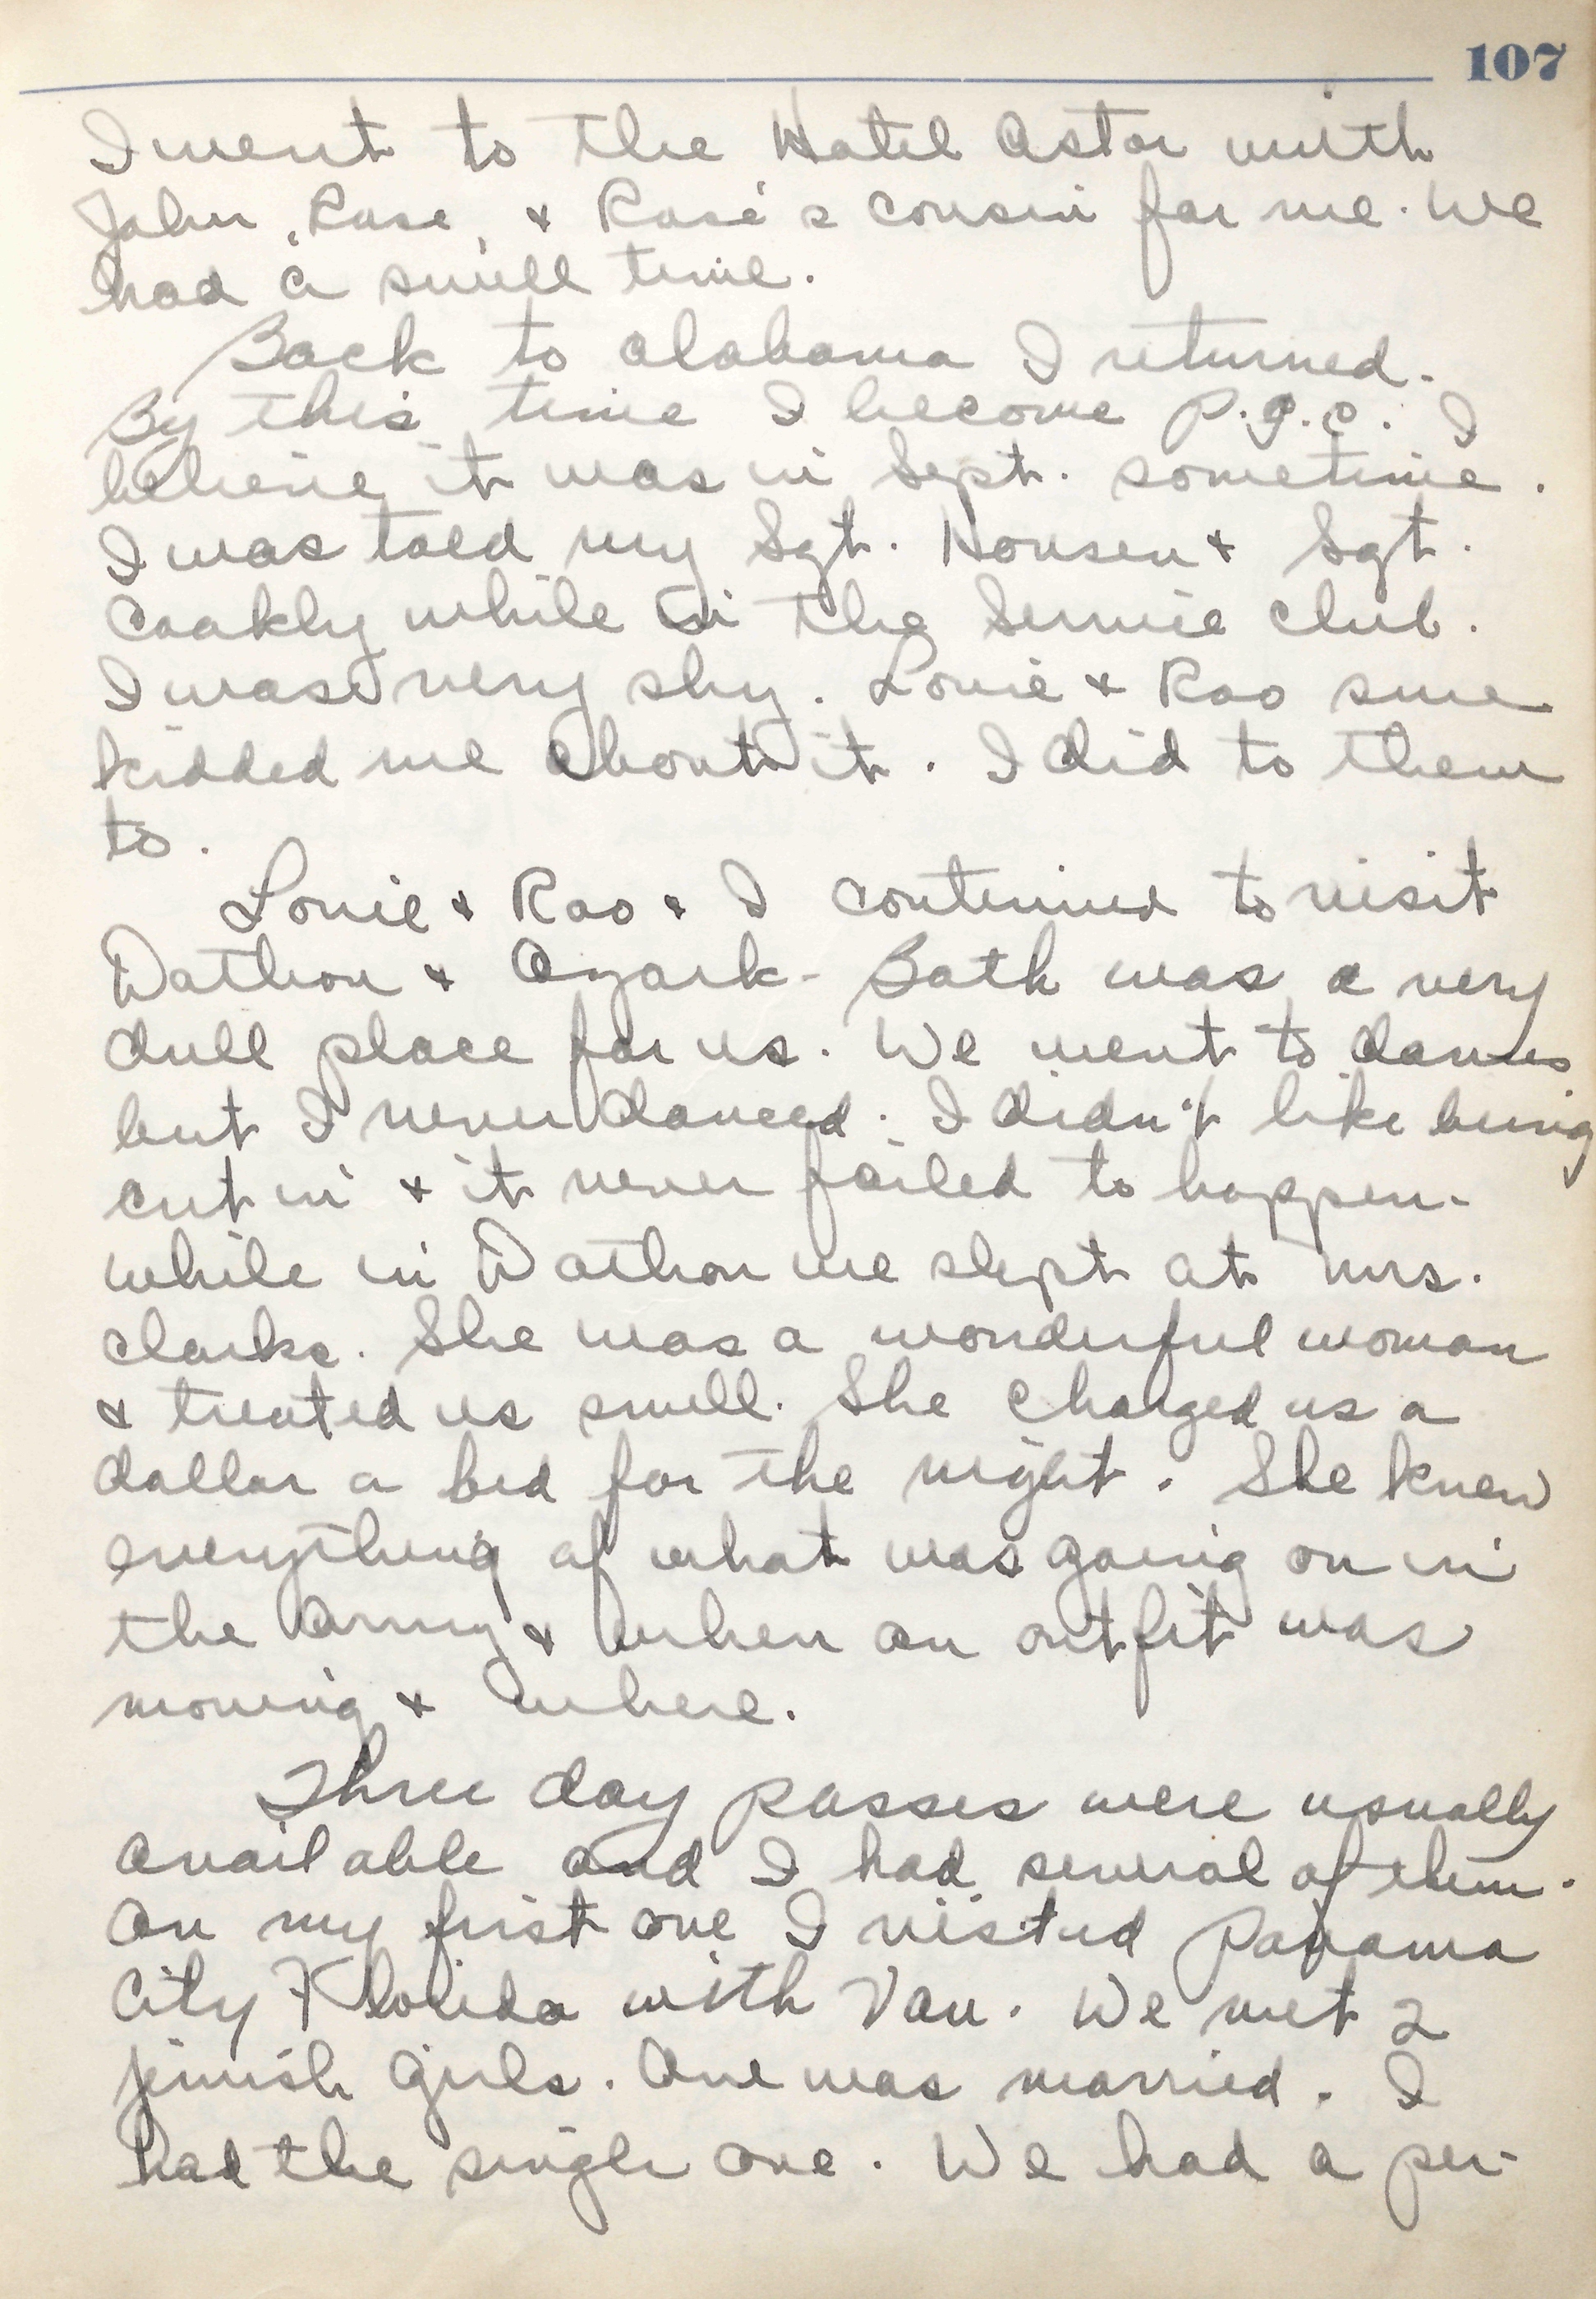 107
I went to the Hotel Astor with
John, Rose, & Rose's cousin for me. We
had a swell time.
Back to Alabama I returned.
By this time I become P.F.C. I
believe it was in Sept. sometime.
I was told my Sgt. Housen & Sgt.
Coakly while in the Service Club.
I was very shy. Louie & Rao sure
kidded me about it. I did to them
to.
Louie & Rao & I continued to visit
Dothon & Ozark. Both was a very
dull place for us. We went to dances
but I never danced. I didn't like being
cut in & it never failed to happen.
While in Dothon we slept at Mrs.
Clarks. She was a wonderful woman
& treated us swell. She charged us a
dollar a bed for the night. She knew
everything of what was going on in
the Army & when an outfit was
moving & where.
Three day passes were usually
available and I had several of them.
On my first one I visted Panama
City Florida with Van. We met 2
jewish girls. One was married. I
had the single one. We had a per-